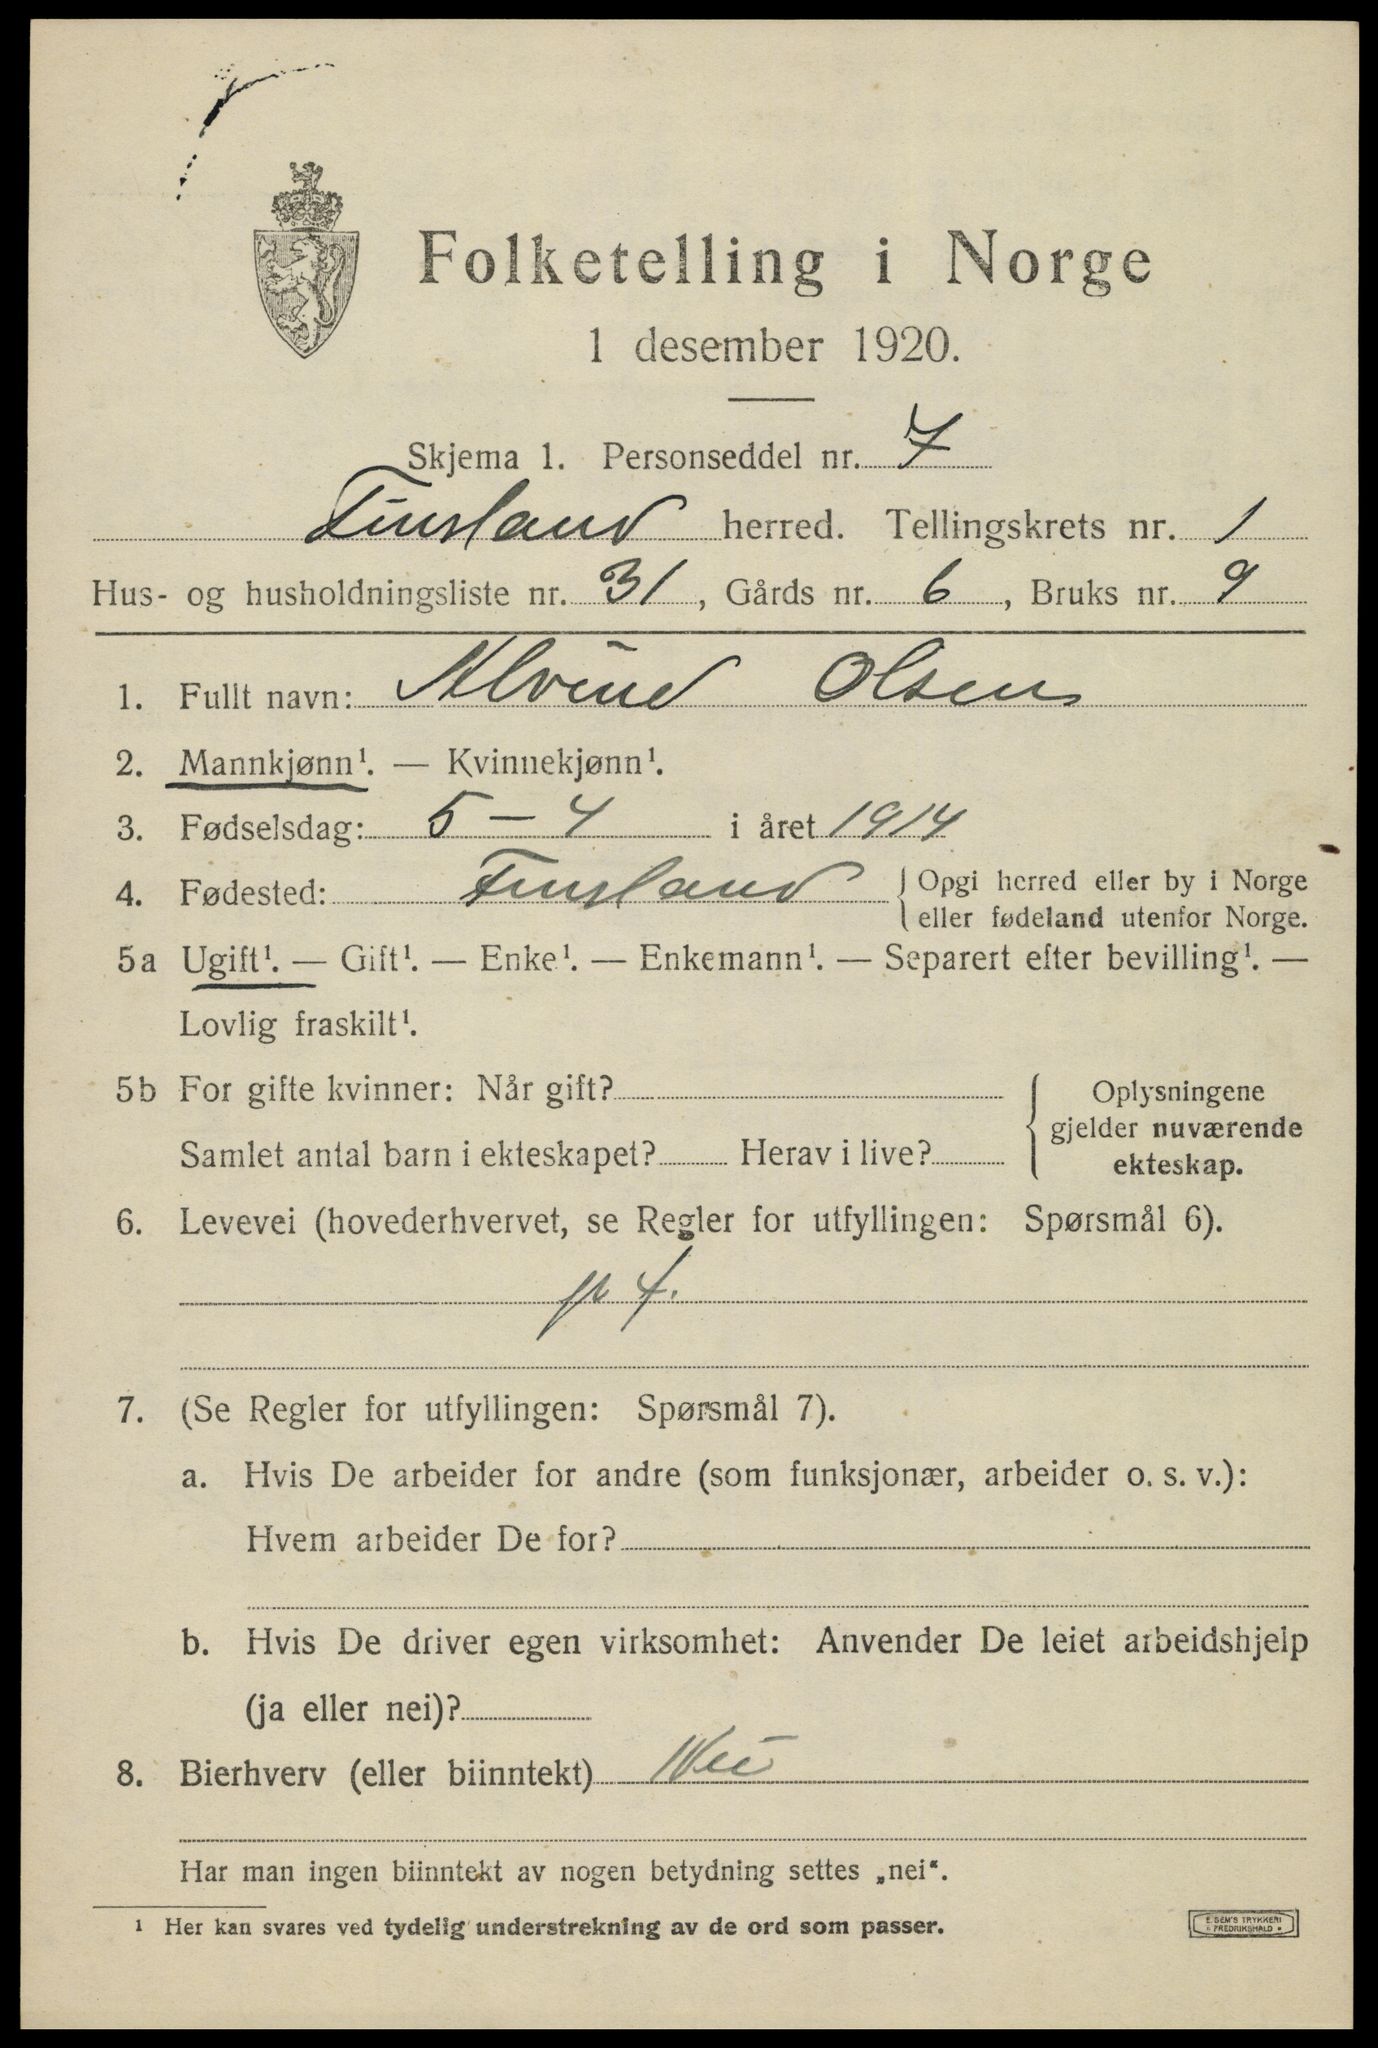 Folketelling i Norge
1 desember 1920.
Skjema 1. Personseddel nr. 7
Finsland herred. Tellingskrets nr. 1
Hus- og husholdningsliste nr. 31, Gårds nr. 6, Bruks nr. 9
1. Fullt navn: Alvind Olsen
2. Mannkjønn¹. — Kvinnekjønn¹.
3. Fødselsdag: 5 – 4 i året 1914
4. Fødested: Finsland { Opgi herred eller by i Norge
eller fødeland utenfor Norge.
5a Ugift¹. — Gift¹. — Enke¹. — Enkemann¹. — Separert efter bevilling¹. —
Lovlig fraskilt¹.
5b For gifte kvinner: Når gift? { Oplysningene
gjelder nuværende
Samlet antal barn i ekteskapet? Herav i live?
ekteskap.
6. Levevei (hovederhvervet, se Regler for utfyllingen: Spørsmål 6).
p 4.
7. (Se Regler for utfyllingen: Spørsmål 7).
a. Hvis De arbeider for andre (som funksjonær, arbeider o. s. v.):
Hvem arbeider De for?
b. Hvis De driver egen virksomhet: Anvender De leiet arbeidshjelp
(ja eller nei)?
8. Bierhverv (eller biinntekt) Nei
Har man ingen biinntekt av nogen betydning settes „nei“.
¹ Her kan svares ved tydelig understrekning av de ord som passer.
E. SEM'S TRYKKERI
FREDRIKSHALD